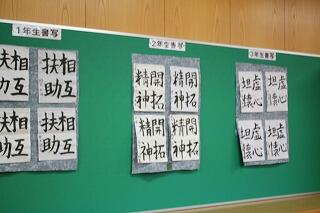 1年生書写
2年生書写
3年生書写
相互
扶助
相互
扶助
相互
扶助
相互
扶助
開拓
精神
開拓
精神
開拓
精神
開拓
精神
虚心
坦懐
虚心
坦懐
虚心
坦懐
虚心
坦懐